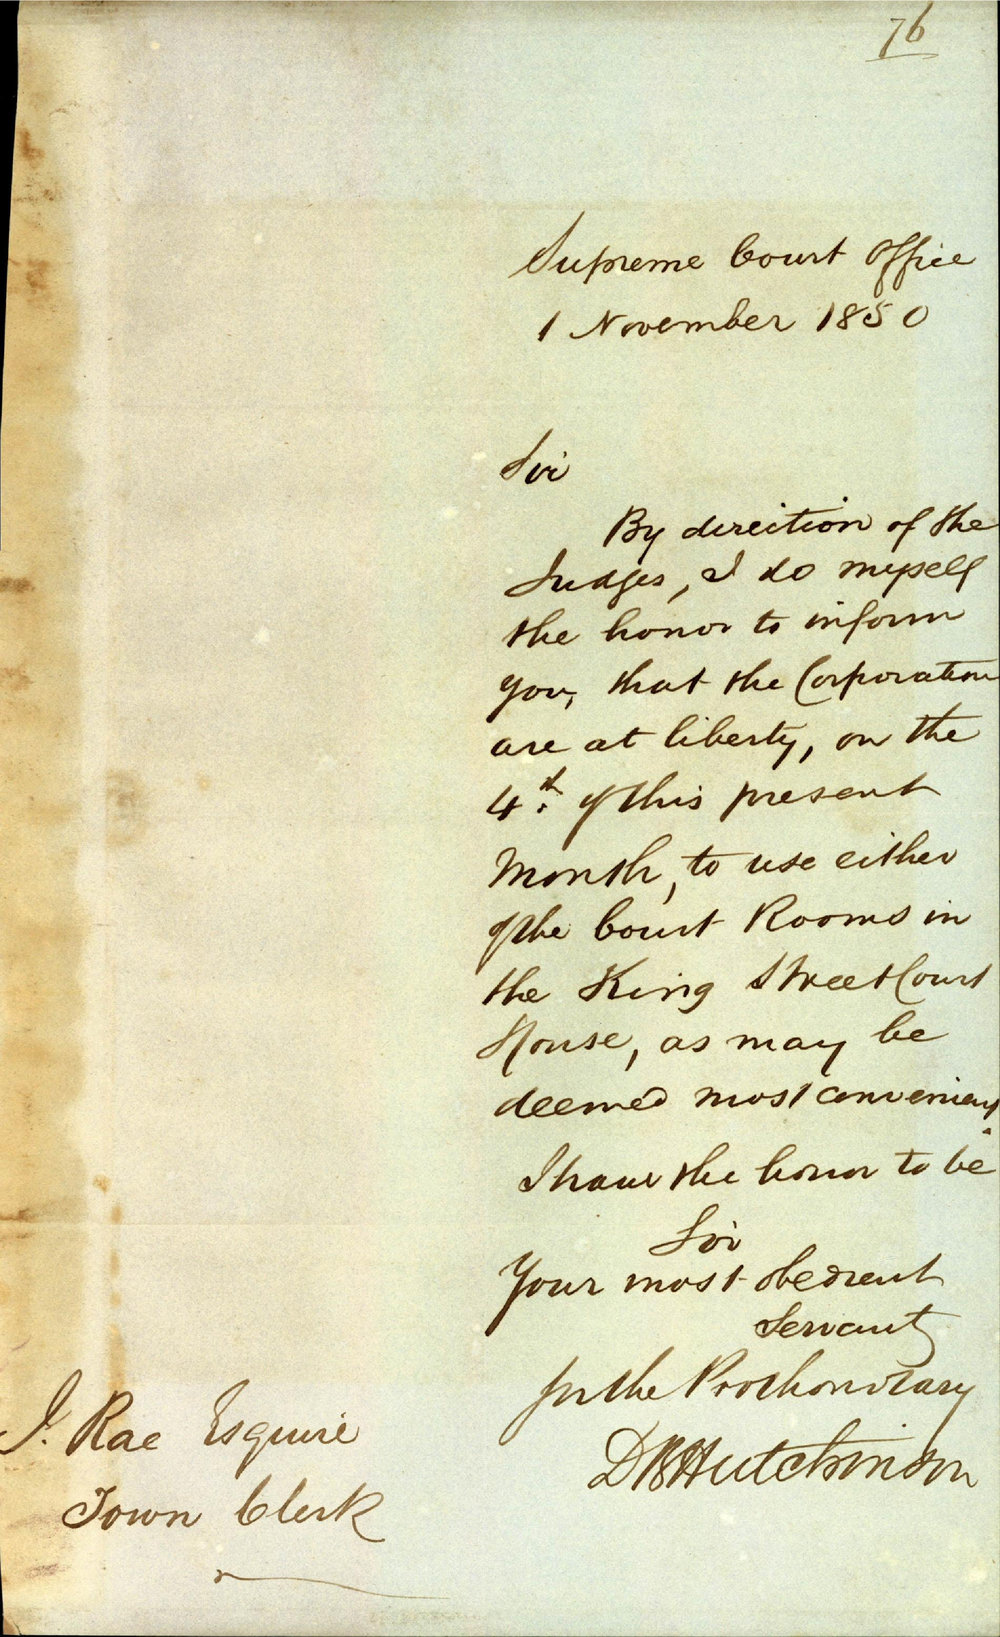 76
Supreme Court Office
1 November 1850
Sir
By direction of the
Judges, I do myself
the honor to inform
you, that the Corporation
are at liberty, on the
4th. of this present
Month, to use either
of the Court Rooms in
the King Street Court
House, as may be
deemed most convenient.
I have the honor to be
Sir
Your most obedient
Servant
for the Prothonotary
D B Hutchinson
J. Rae Esquire
Town Clerk